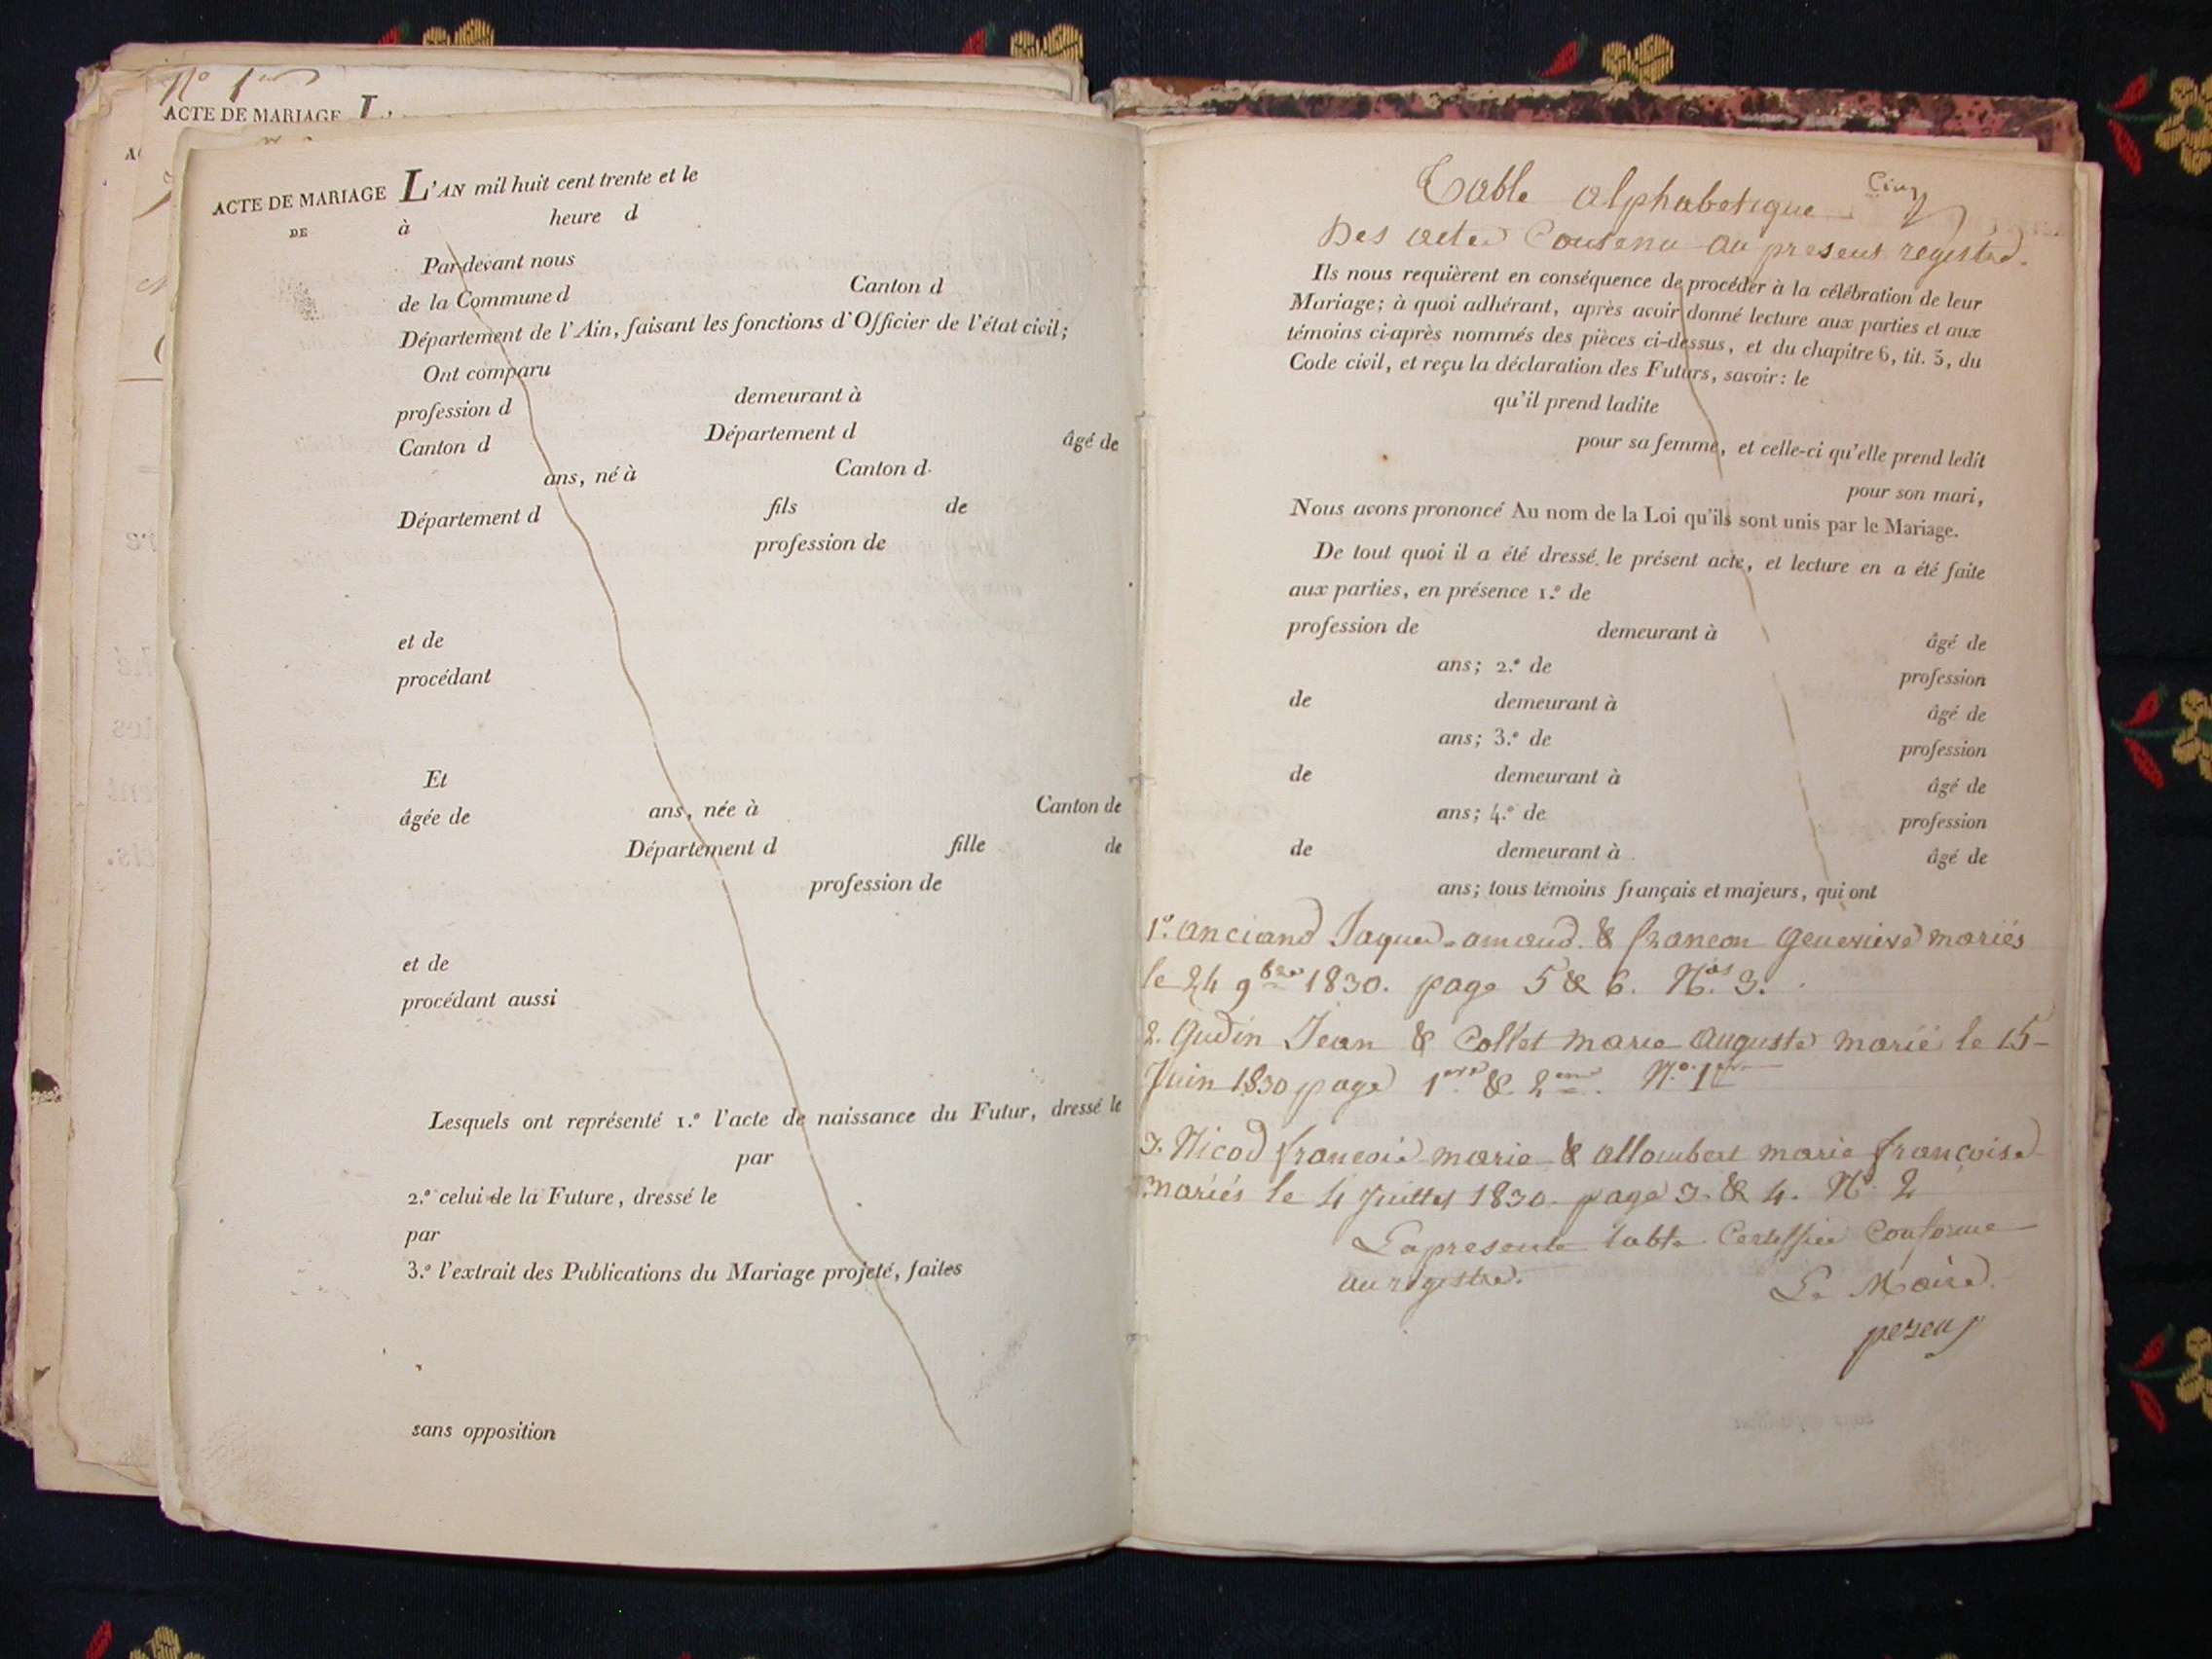 N° 1er
ACTE DE MARIAGE L'
ACTE DE MARIAGE L'AN mil huit cent trente et le
DE à heure d
Par-devant nous
de la Commune d Canton d
Département de l'Ain, faisant les fonctions d'Officier de l'état civil;
Ont comparu
profession d demeurant à
Canton d Département d âgé de
ans, né à Canton d
Département d fils de
profession de
et de
procédant
Et
âgée de ans, née à Canton de
Département d fille de
profession de
et de
procédant aussi
Lesquels ont représenté 1.° l'acte de naissance du Futur, dressé le
par
2.° celui de la Future, dressé le
par
3.° l'extrait des Publications du Mariage projeté, faites
sans opposition
Cinq
Table alphabetique
Des actes Contenu au present registre.
Ils nous requièrent en conséquence de procéder à la célébration de leur
Mariage; à quoi adhérant, après avoir donné lecture aux parties et aux
témoins ci-après nommés des pièces ci-dessus, et du chapitre 6, tit. 5, du
Code civil, et reçu la déclaration des Futurs, savoir: le
qu'il prend ladite
pour sa femme, et celle-ci qu'elle prend ledit
pour son mari,
Nous avons prononcé Au nom de la Loi qu'ils sont unis par le Mariage.
De tout quoi il a été dressé le présent acte, et lecture en a été faite
aux parties, en présence 1.° de
profession de demeurant à âgé de
ans; 2.° de profession
de demeurant à âgé de
ans; 3.° de profession
de demeurant à âgé de
ans; 4.° de profession
de demeurant à âgé de
ans; tous témoins français et majeurs, qui ont
1°. anciand Jaques amand & francon genevieve mariés
le 24 9bre 1830. page 5 & 6. N°. 3.
2. Gudin Jean & Collet marie Auguste marié le 15
Juin 1830 page 1ere & 2eme. N°. 1er
3. Nicod francois marie & allombert marie françoise
mariés le 4 Juillet 1830. page 3. & 4. N° 2
La presente table Certiffiée Conforme
au registre. Le Maire.